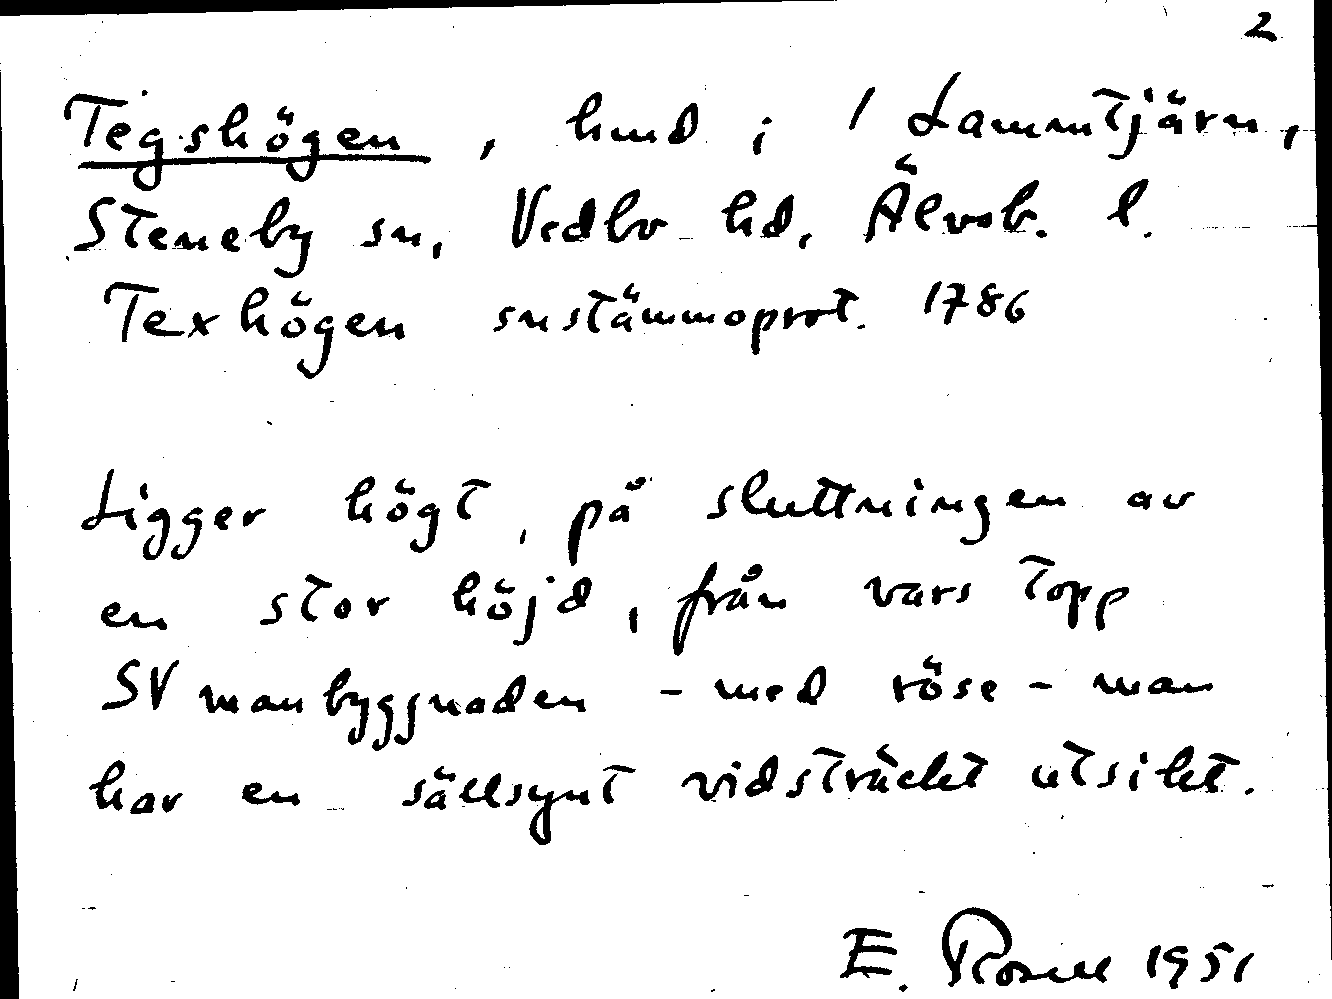 2
Tegshögen, hmd i 1 Lammtjärn,
Steneby sn, Vedbo hd, Älvsb. l.
Texhögen snstämmoprot. 1786
Ligger högt, på sluttningen av
en stor höjd, från vars topp
SV manbyggnaden - med röse - man
har en sällsynt vidsträckt utsikt.
E. Rosell 1951